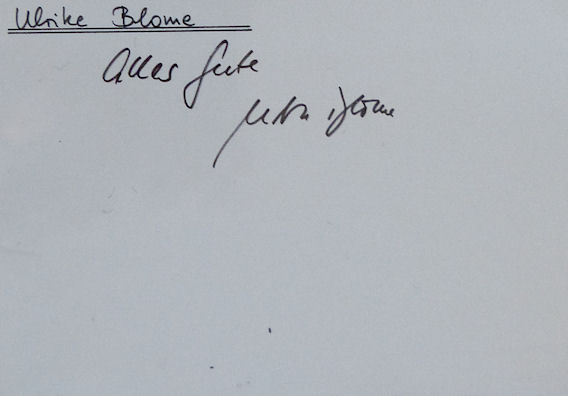 Ulrike Blome
Alles Gute
Ulrike Blome